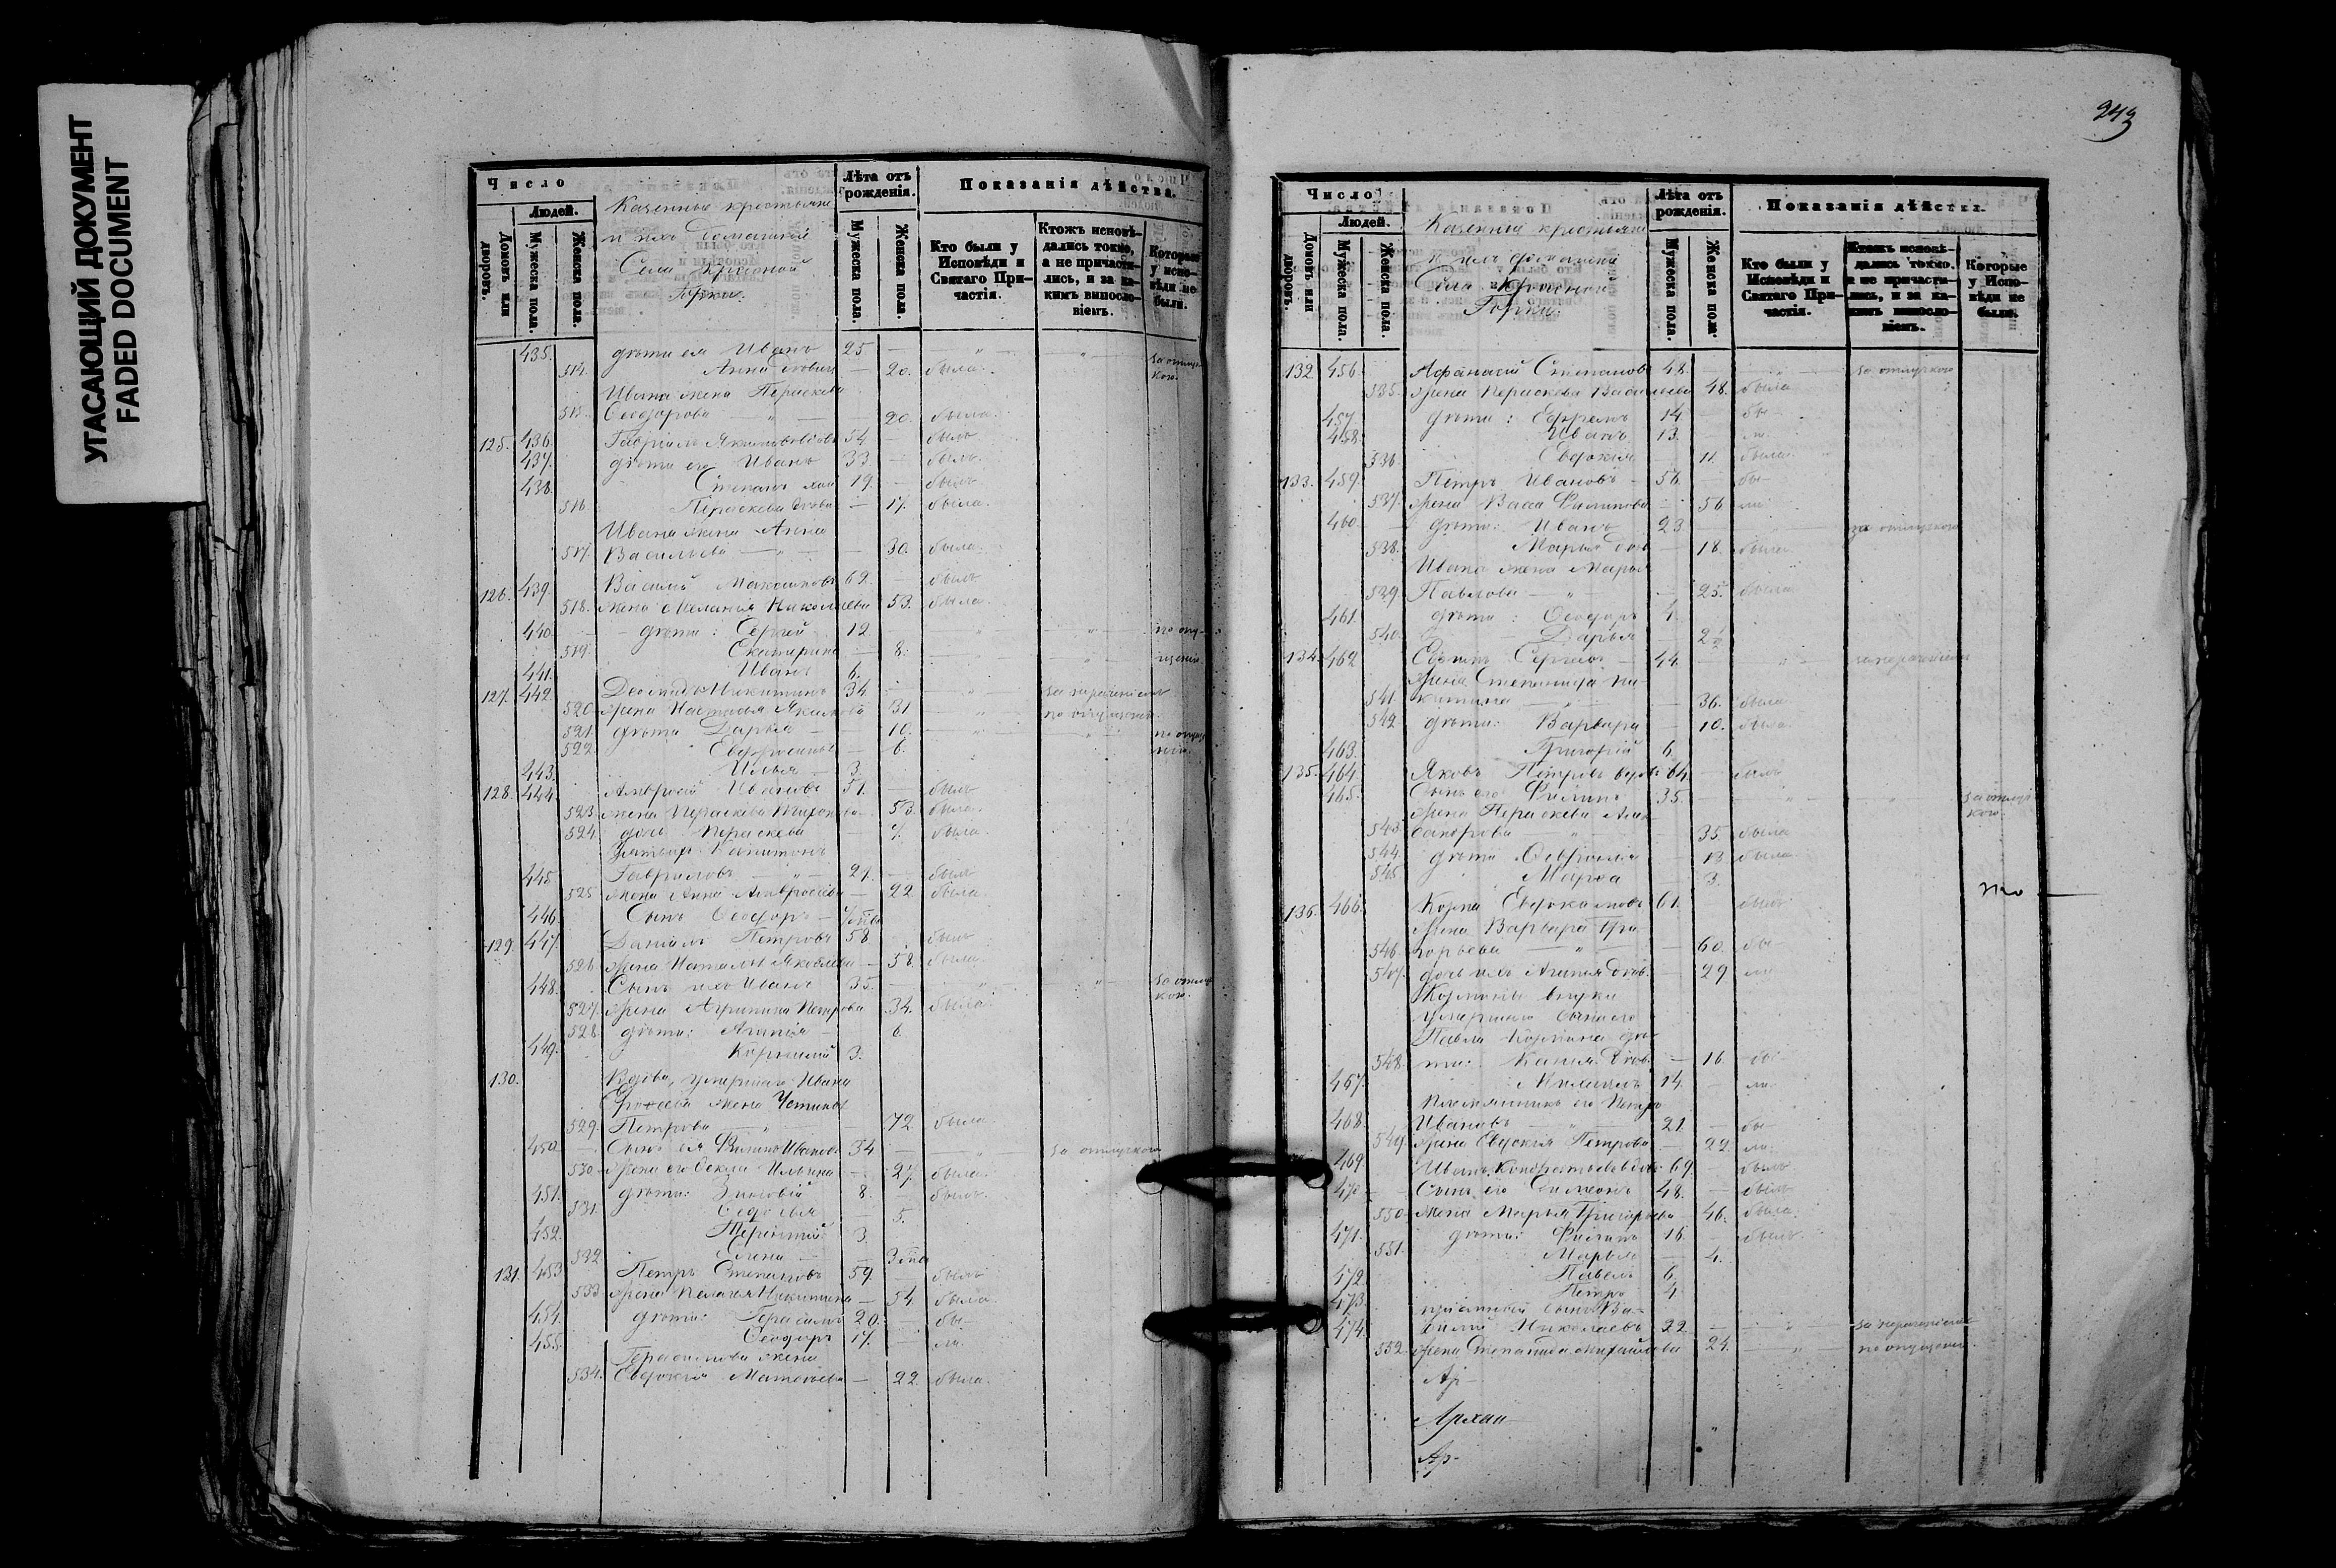 УГАСАЮЩИЙ ДОКУМЕНТ
FADED DOCUMENT
Число
Людей.
Домовъ или дворовъ.
Мужеска пола.
Женска пола.
Казенные крестьяне
и ихъ домашніе
Села Красной
Горки.
Лѣта отъ рожденія.
Мужеска пола.
Женска пола.
Показанія дѣйства.
Кто были у
Исповѣди и
Святаго При-
частія.
Ктожъ исповѣ-
дались токмо,
а не причасти-
лись, и за ка-
кимъ виносло-
віемъ.
Которые
у испо-
вѣди не
были.
435. дѣти ея Иванъ 25 — „ „ за отлуч-
514. Анна 20. была. кою.
Ивана жена Параскева
515. Ѳеодорова — „ — 20. была.
125. 436. Гавріилъ 54 — былъ
437. дѣти его Иванъ 33. — былъ.
438. Степанъ 19. — былъ
516. Параскева — 17. была.
Ивана жена Анна
517. Васильева — „ — 30. была.
126. 439. Василій 62. — былъ
518. жена Меланья Николаева 53. была.
440. дѣти: Сергій 12 „ „
519. Екатерина — 8. „
441. Иванъ 6.
127. 442. Никитинъ 34 „ за нераченіемъ
520. жена Настасья Якимова 31 „ по опущенію.
521. дѣти Дарья — 10. „ „
522. Евфросинья — 6.
443. Илья — 3.
128. 444. Амвросій Ивановъ 51. — былъ
523. жена Параскева — 53. была.
524. дочь Параскева — 7. была.
Зять его
445. Гавриловъ — „ — 21. — былъ
525. жена Анна Амвросіева — 22 была.
446. Сынъ Ѳеодоръ —
129. 447. Даніилъ Петровъ 58 — былъ
526. жена Наталья Яковлева — 58. была.
448. Сынъ ихъ Иванъ 35. — „ „ за отлуч-
кою.
527. жена Агрипина Петрова 34. была.
528. дѣти: 6
449. Корнилій 3.
130. Вдова, умершаго Ивана
жена Устинья
529. Петрова — „ — 72 была
450. Сынъ ея Филипъ Ивановъ 34 — „ за отлучкою
530. жена его Ѳекла Ильина — 27. была.
451. дѣти: Зиновій 8. — былъ.
531. — 5.
452. Терентій 3.
532. Елена —
131. 453. Петръ Степановъ 59. — былъ
533. жена Пелагея Никитина — 54. была.
454. дѣти: Герасимъ 20. — бы-
455. Ѳеодоръ 17. — ли.
Герасимова жена
534. Евдокія Матвѣева — 22. была.
243
Число
Людей.
Домовъ или дворовъ.
Мужеска пола.
Женска пола
Казенные крестьяне
и ихъ домашніе
Села Красной
Горки.
Лѣта отъ рожденія.
Мужеска пола.
Женска пола.
Показанія дѣйства.
Кто были у
Исповѣди и
Святаго При-
частія.
Ктожъ исповѣ-
дались токмо,
а не причасти-
лись, и за ка-
кимъ виносло-
віемъ.
Которые
у Испо-
вѣди не
были.
132. 456 Аѳанасій Степановъ 48. „ за отлучкою
535. жена Параскева Васильева 48. была
457. дѣти: Ефремъ 14 — бы-
458. Иванъ 13. — ли
536. Евдокія 11. была.
133. 459. Петръ Ивановъ 56 — бы-
537. жена Васса Филипова — 56 ли
460. дѣти: Иванъ 23 за отлучкою
538. Марья — 18. была.
Ивана жена Марья
539. Павлова — „ — 25. была.
461. дѣти: Ѳеодоръ 4.
540. Дарья — 2½
134. 462. Сергѣевъ 44. „ за нераченіемъ
жена Степанида Ни-
541. китина — „ 36. была.
542. дѣти: Варвара — 10. была.
463. Григорій 6.
135. 464. Яковъ Петровъ 64. — былъ
465. Сынъ его Филипъ 35. — „ „ за отлуч-
жена Параскева Алек- кою.
543. сандрова „ 35. была
544. дѣти 13 была.
545. Марѳа 3.
136. 466. Козма Евдокимовъ 61. — былъ
жена Варвара Гри-
546. горьева — „ — 60. бы-
547. дочь ихъ 29 ли
Козмины внуки
умершаго сына его
Павла Козмина дѣ-
548. ти: — 16. бы-
467. Михаилъ 14. — ли.
племянникъ его Петръ
468. Ивановъ — „ — 21. — бы-
549. жена Евдокія Петрова — 22. ли.
469. Иванъ Кондратьевъ 69. — былъ
470. Сынъ его Симеонъ 48. — былъ
550. жена Марья Григорьева — 46. была.
471. дѣти: Филипъ 16. — былъ.
551. Марья — 4.
472. Павелъ 6.
473. Петръ 4.
пріемный сынъ Ва-
474. силій Николаевъ 22. — „ за нераченіемъ
552. жена Степанида Михайлова 24. „ по опущенію.
Ар-
Архан-
Ар-